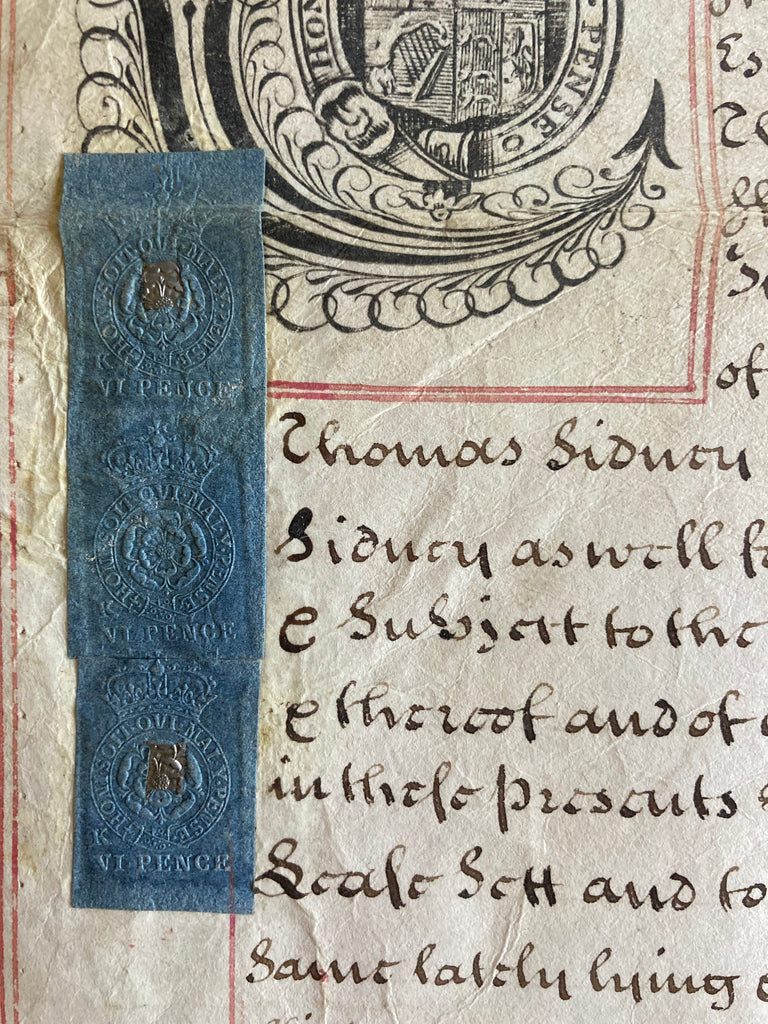 HON
PENSE
Es
of
HONI·SOIT·QUI·MAL·Y·PENSE
K
VI PENCE
HONI·SOIT·QUI·MAL·Y·PENSE
K
VI PENCE
HONI·SOIT·QUI·MAL·Y·PENSE
K
VI PENCE
Thomas Sidney
Sidney as well fo
e Subject to the
e thereof and of
in these Presents
Lease Sett and to
Same lately lying